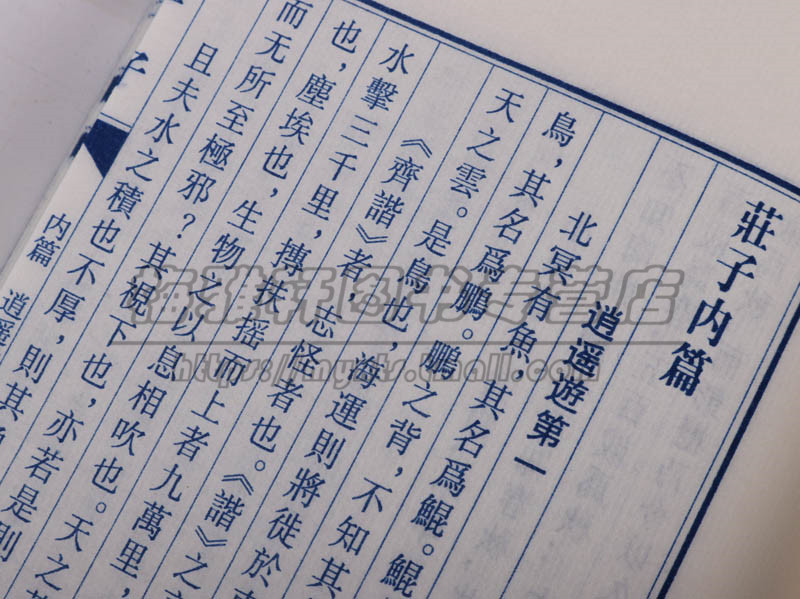 莊子内篇
逍遥遊第一
北冥有魚，其名爲鯤。鯤
鳥，其名爲鵬。鵬之背，不知其
天之雲。是鳥也，海運則將徙於
《齊諧》者，志怪者也。《諧》之
水擊三千里，摶扶摇而上者九萬里，
也，塵埃也，生物之以息相吹也。天之
而无所至極邪？其視下也，亦若是則
且夫水之積也不厚，則其
子
内篇 逍遥
图书专营店